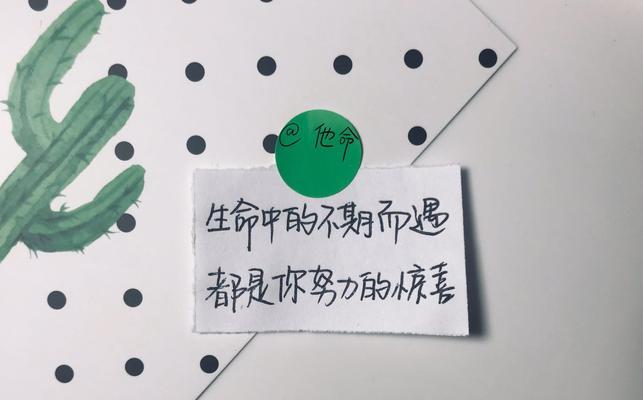 @他命
生命中的不期而遇
都是你努力的惊喜